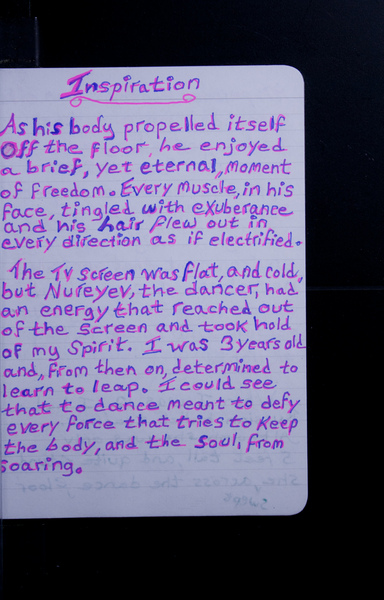 Inspiration
As his body propelled itself
off the floor, he enjoyed
a brief, yet eternal, moment
of freedom. Every muscle, in his
face, tingled with exuberance
and his hair flew out in
every direction as if electrified.
The TV screen was flat, and cold,
but Nureyev, the dancer, had
an energy that reached out
of the screen and took hold
of my spirit. I was 3 years old
and, from then on, determined to
learn to leap. I could see
that to dance meant to defy
every force that tries to keep
the body, and the soul, from
soaring.